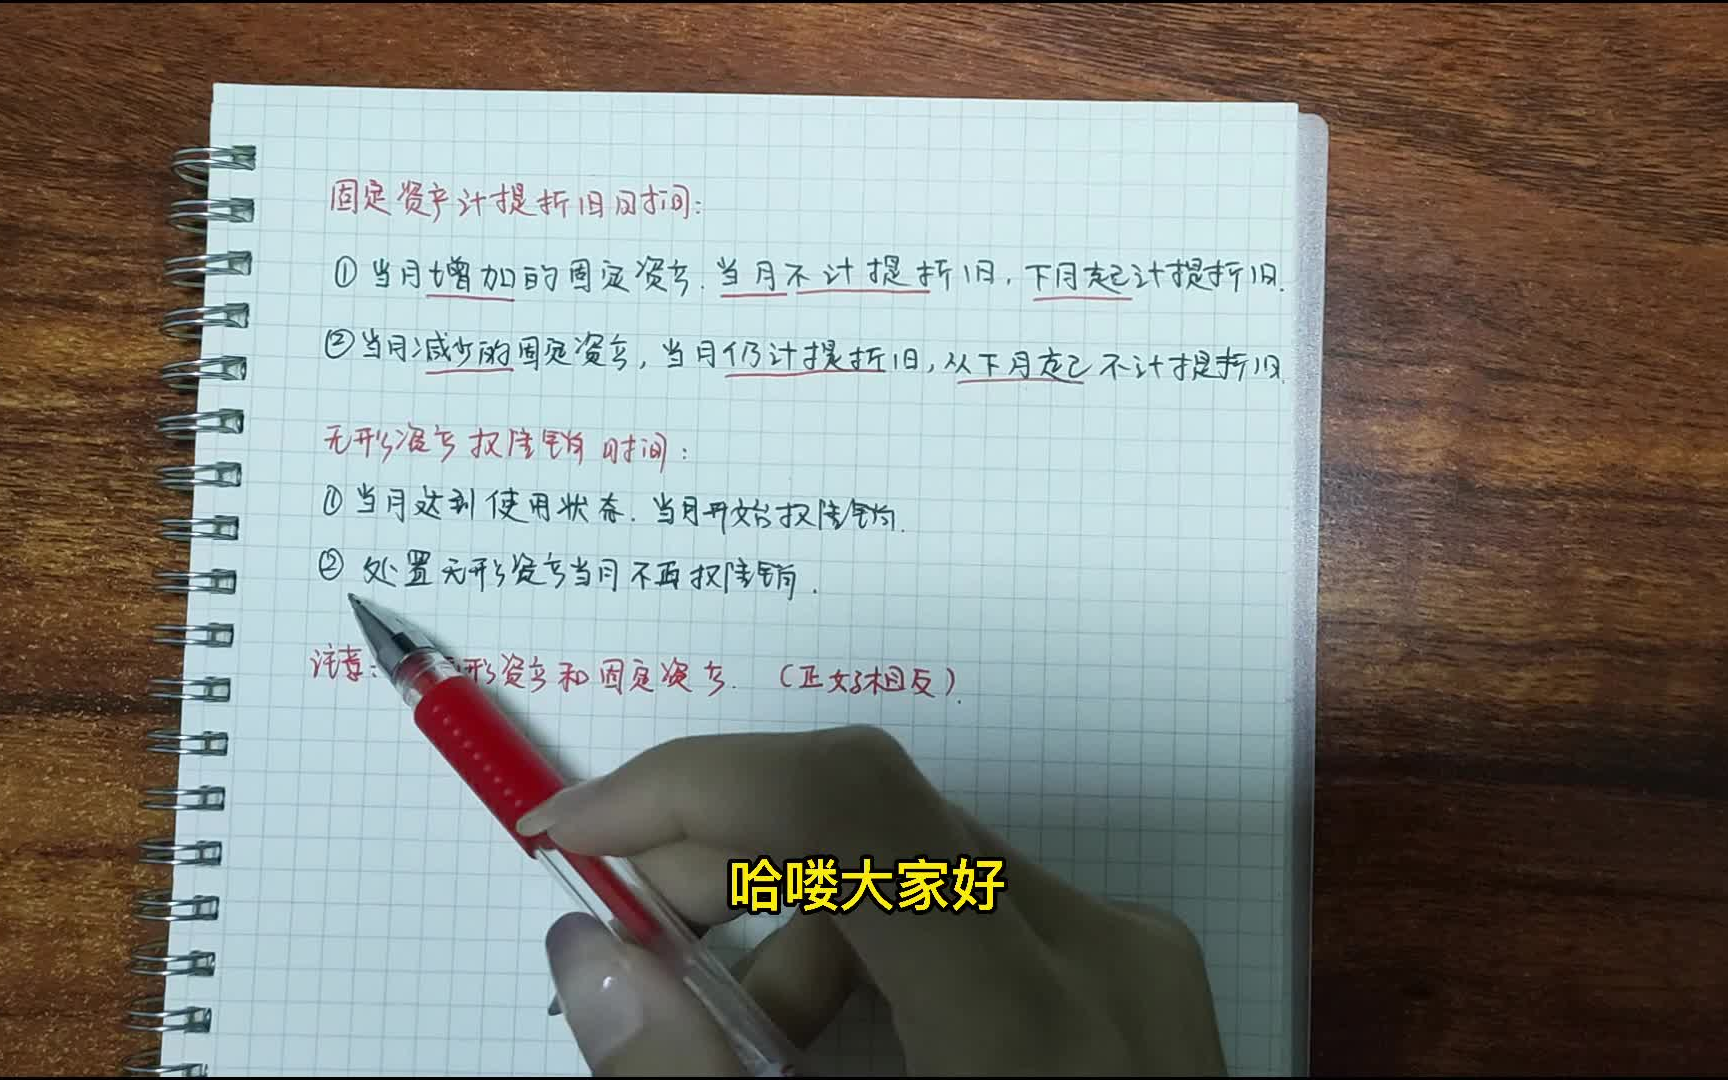 固定资产计提折旧时间:
①当月增加的固定资产.当月不计提折旧,下月起计提折旧.
②当月减少的固定资产,当月仍计提折旧,从下月起不计提折旧.
无形资产摊销时间:
①当月达到使用状态.当月开始摊销.
②处置无形资产当月不再摊销.
注意: 形资产和固定资产.(正好相反).
哈喽大家好